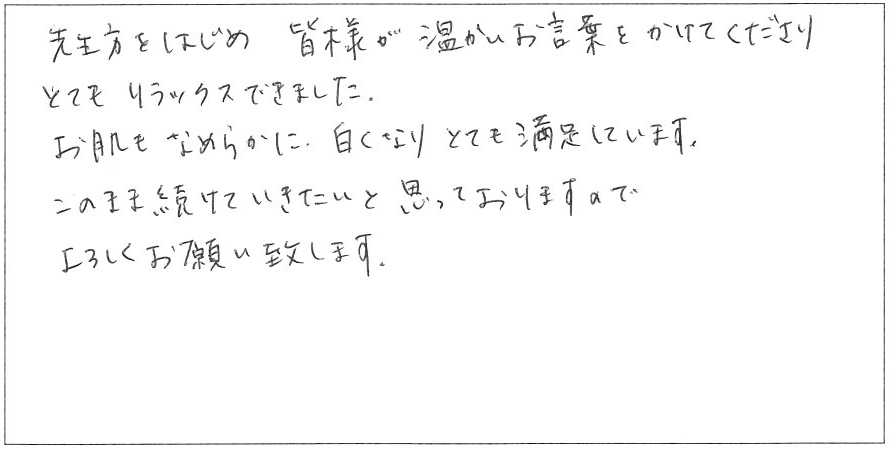 先生方をはじめ 皆様が 温かいお言葉を かけてくださり
とても リラックスできました.
お肌も なめらかに. 白くなり とても 満足しています.
このまま続けていきたいと 思っておりますので
よろしくお願い致します.